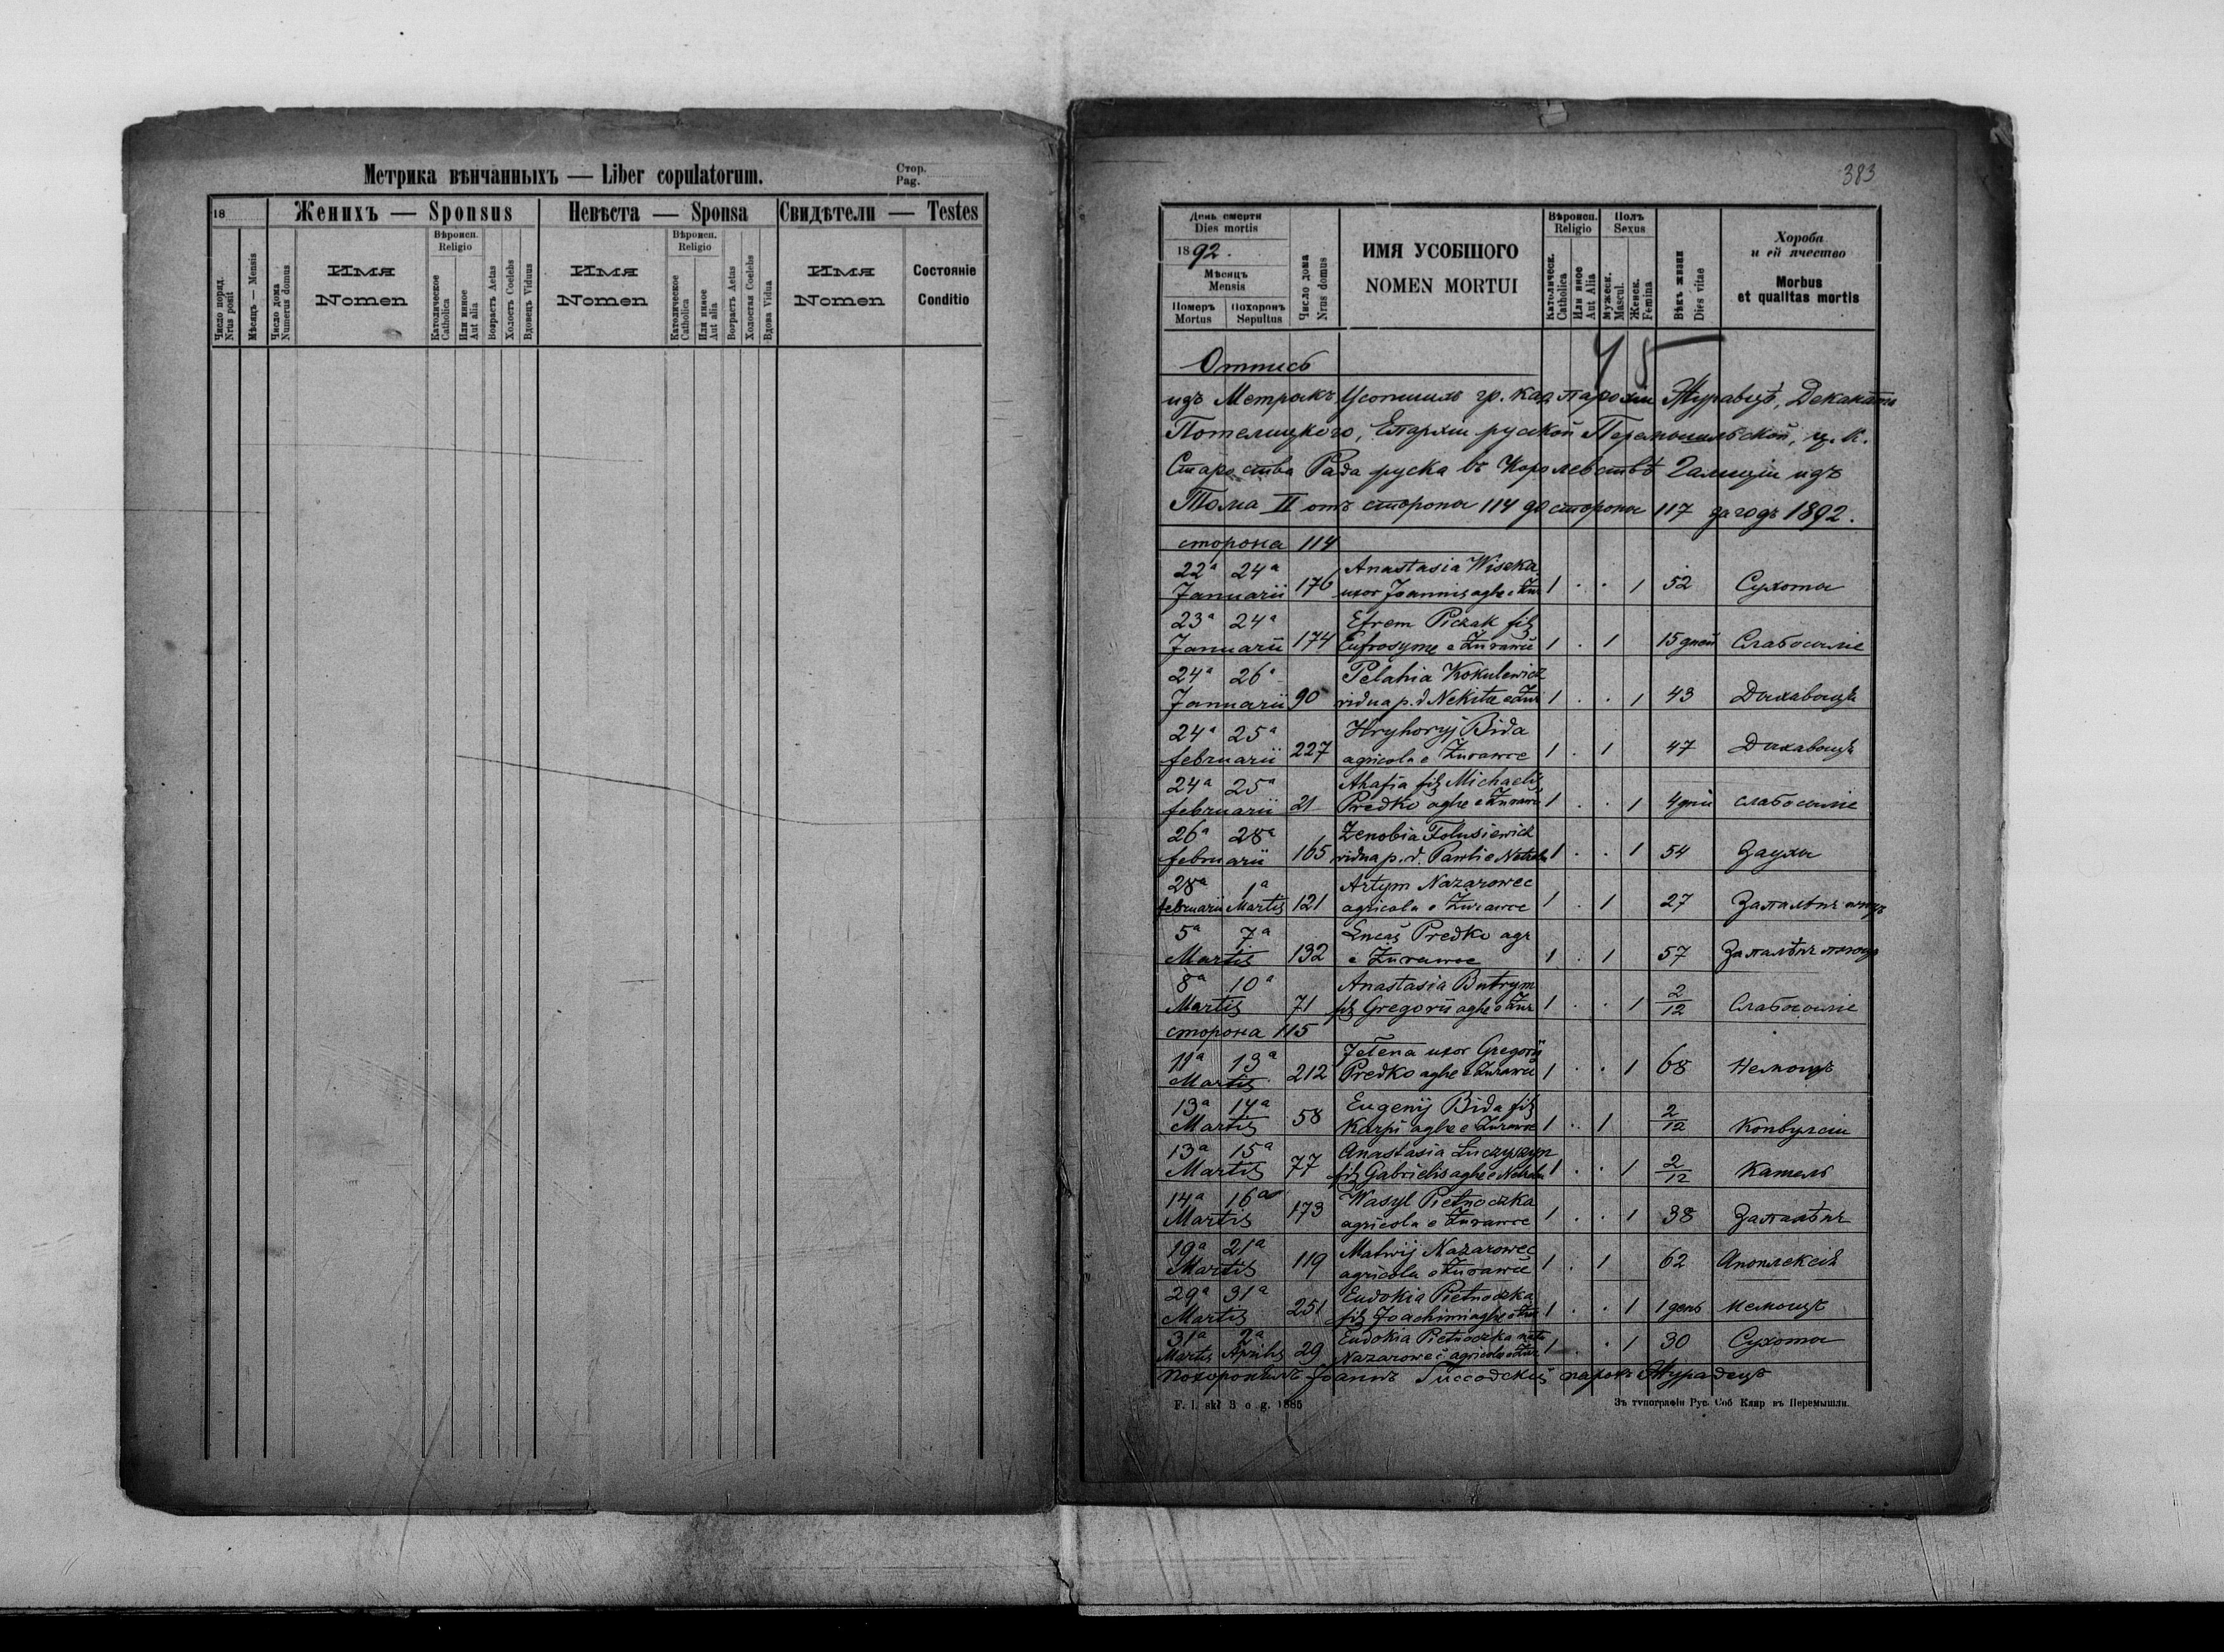 Метрика вѣнчанныхъ — Liber copulatorum.
Стор.
Pag.
18
Женихъ — Sponsus
Невѣста — Sponsa
Свидѣтели — Testes
Число поряд.
Nrus posit
Мѣсяцъ — Mensis
Число дома
Numerus domus
Имя
Nomen
Вѣроисп.
Religio
Католическое
Catholica
Или инное
Aut alia
Возрастъ Aetas
Холостъ Coelebs
Вдовецъ Viduus
Имя
Nomen
Вѣроисп.
Religio
Католическое
Catholica
Или инное
Aut alia
Возрастъ Aetas
Холостая Coelebs
Вдова Vidua
Имя
Nomen
Состояніе
Conditio
383
День смерти
Dies mortis
1892.
Мѣсяцъ
Mensis
Померъ
Mortus
Похоронъ
Sepultus
Число дома
Nrus domus
ИМЯ УСОБШОГО
NOMEN MORTUI
Вѣроисп.
Religio
Католическ.
Catholica
Или иное
Aut Alia
Полъ
Sexus
Мужеск.
Mascul.
Женск.
Femina
Вѣкъ жизни
Dies vitae
Хороба
и ей ячество
Morbus
et qualitas mortis
Отпись
изъ Метрикъ Усопшихъ гр. кат. парохіи Журавцѣ, Деканата
Потелицкого, Епархіи руской Перемышльской, ц. к.
Староства Рава руска въ Королевствѣ Галиціи изъ
Тома II отъ стороны 114 до стороны 117 за годъ 1892.
сторона 114
22ª 24ª Januarii 176 Anastasia Wiseka
uxor Joannis aghe e Żur 1 . . 1 52 Сухоты
23ª 24ª Januarii 174 Efrem Piczak fil
Eufrosyme e Żurawcé 1 . 1 15 дней Слабосиліе
24ª 26ª Januarii 90 Pelahia Kokulewicz
vidua p. d. Nekita e Żur 1 . . 1 43 Дыхавиця
24ª 25ª februarii 227 Hryhoryj Bida
agricola e Żurawce 1 . 1 47 Дыхавиця
24ª 25ª februarii 21 Ahafia fil Michaelis
Predko aghe e Żurawce 1 . . 1 4 дни слабосиліе
26ª 28ª februarii 165 Zenobia
vidua p. d. Pawli e 1 . . 1 54
28ª februarii 1ª Martis 121 Artym Nazarowec
agricola e Żurawce 1 . 1 27
5ª 7ª Martis 132 Lucas Predko agr
e Żurawce 1 . 1 57
8ª 10ª Martis 71 Anastasia Butrym
fil Gregorii aghe e Żur 1 . . 1 2/12 Слабосиліе
сторона 115
11ª 13ª Martis 212 Jełena uxor Gregorii
Predko aghe e Żurawce 1 . . 1 68 Немощь
13ª 14ª Martis 58 Eugenij Bida fil
Karpi aghe e Żurawce 1 . 1 2/12 Конвулсіи
13ª 15ª Martis 77 Anastasia Łuczyszyn
fil Gabrielis aghe e 1 . . 1 2/12 Кашель
14ª 16ª Martis 173 Wasyl Pietnoczka
agricola e Żurawce 1 . . 1 38
19ª 21ª Martis 119 Matwij Nazarowec
agricola e Żurawce 1 . 1 62 Апоплексія
29ª 31ª Martis 251 Eudokia Pietnoczka
fil Joachimi aghe e Żur 1 . . 1 1 день немощь
31ª Martis 2ª Aprilis 29 Eudokia Pietnoczka nata
Nazarowec agricola e Żur 1 . . 1 30 Сухоты
Іоаннъ парохъ
F. l. skł 3 o g. 1885
Зъ типографіи Рус. Соб Клир въ Перемышли.